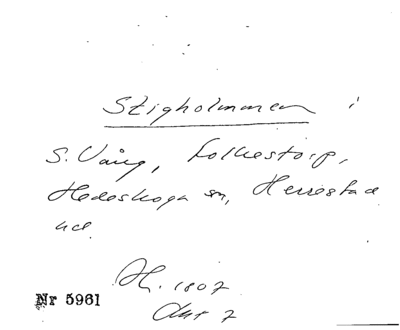 Stigholmmen i
S. Vång, Folkestorp,
Hedeskoga sn, Herrestad
hd.
H. 1807
Akt 7
Nr 5961